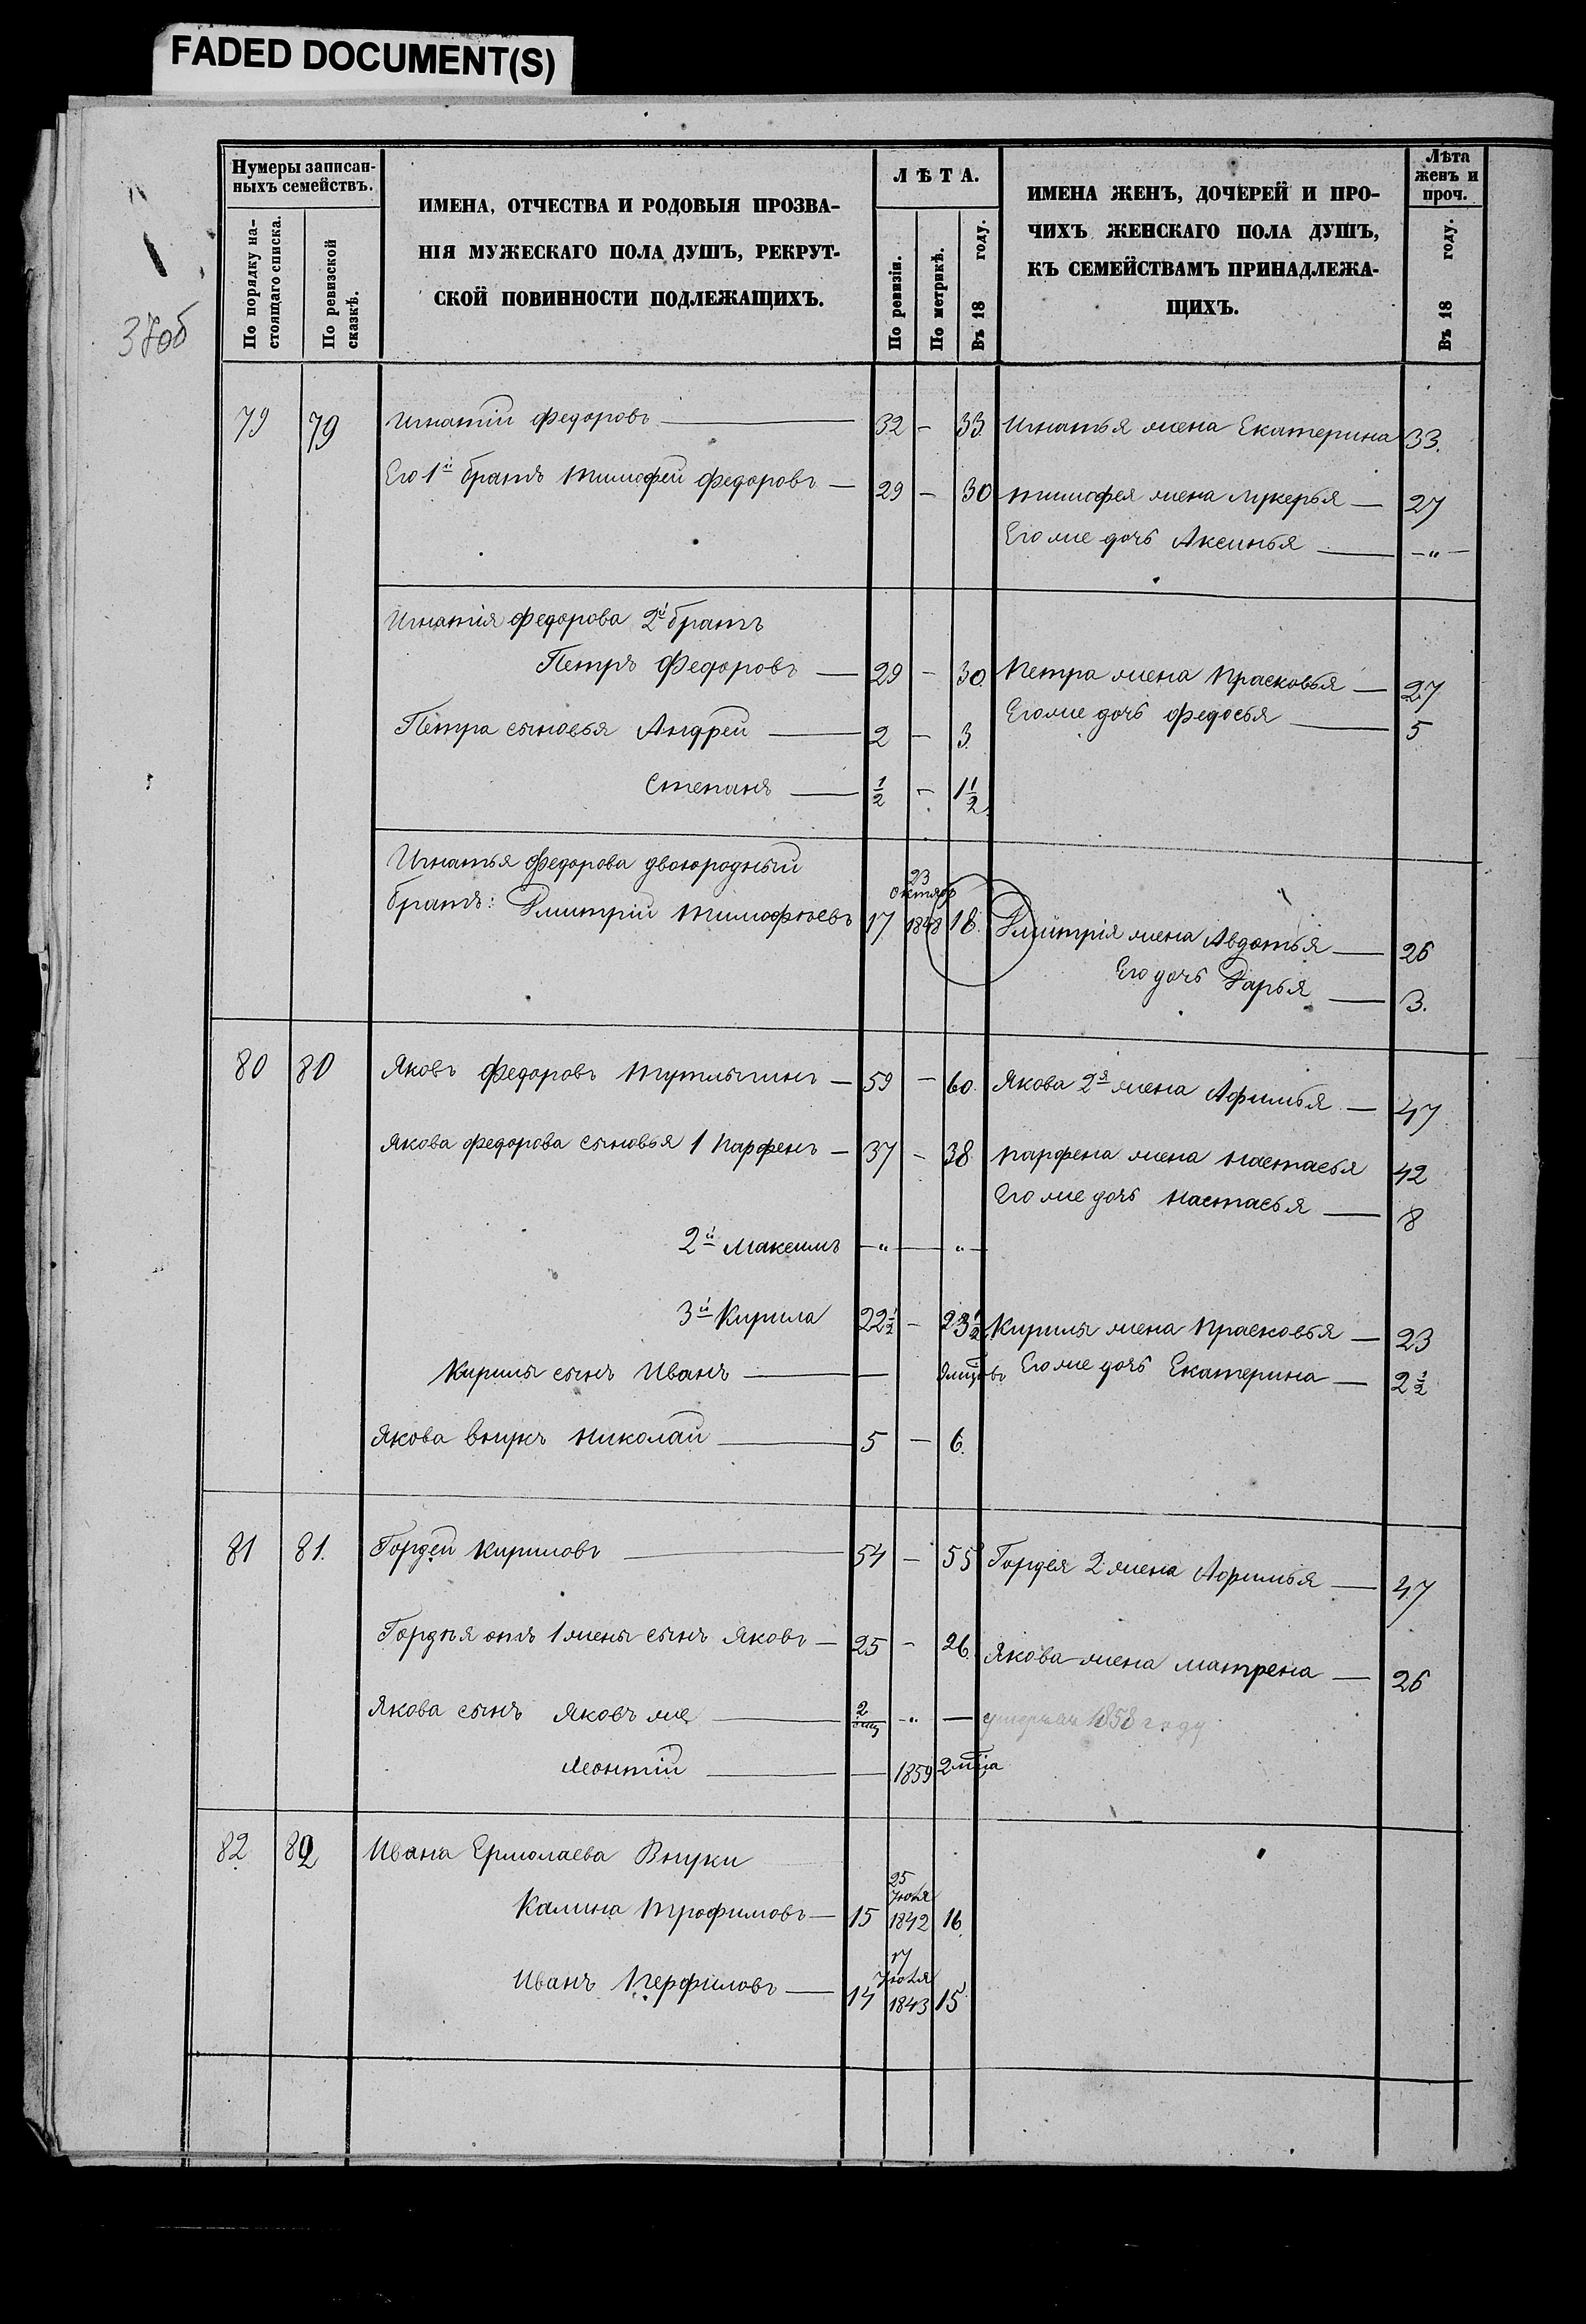 FADED DOCUMENT(S)
37об
Нумеры записан-
ныхъ семействъ.
По порядку на-
стоящаго списка.
По ревизской
сказкѣ.
ИМЕНА, ОТЧЕСТВА И РОДОВЫЯ ПРОЗВА-
НІЯ МУЖЕСКАГО ПОЛА ДУШЪ, РЕКРУТ-
СКОЙ ПОВИННОСТИ ПОДЛЕЖАЩИХЪ.
ЛѢТА.
По ревизіи.
По метрикѣ.
Въ 18 году.
ИМЕНА ЖЕНЪ, ДОЧЕРЕЙ И ПРО-
ЧИХЪ ЖЕНСКАГО ПОЛА ДУШЪ,
КЪ СЕМЕЙСТВАМЪ ПРИНАДЛЕЖА-
ЩИХЪ.
Лѣта
женъ и
проч.
Въ 18 году.
79 79 Игнатій Федоровъ — 32 — 33. Игнатья жена Екатерина 33.
Его 1й братъ Тимофей Федоровъ — 29 — 30 Тимофея жена Лукерья — 27
Его же дочь Аксинья — — „ —
Игнатія Федорова 2й братъ
Петръ Федоровъ — 29 — 30. Петра жена Прасковья — 27
Его же дочь Федосья — 5
Петра сыновья Андрей — 2 — 3.
Степанъ — 1/2 — 1 1/2.
Игнатья Федорова двоюродный
23
октября
братъ: Дмитрій Тимофѣевъ 17 1848 18. Дмитрія жена Авдотья — 26
Его дочь Дарья — 3.
80 80 Яковъ Федоровъ — 59 — 60. Якова 2я жена Афимья — 47
Якова Федорова сыновья 1 Парфенъ — 37 — 38. Парфена жена Настасья 42
Его же дочь Настасья — 8
2й Максимъ — „ — „ —
3й Кирила 22 1/2 — 23 1/2 Кирилы жена Прасковья — 23
Кирилы сынъ Иванъ — — Его же дочь Екатерина — 2 1/2
Якова внукъ Николай — 5 — 6.
81 81. Гордей Кириловъ — 54 — 55 Гордея 2 жена Афимья — 47
Гордѣя отъ 1 жены сынъ Яковъ — 25 — 26. Якова жена Матрена — 26
Якова сынъ Яковъ же — 2 — „ — — 1858 году
Леонтій — — 1859 2 м-ца
82. 82 Ивана Ермолаева Внуки
25
Іюля
Калина Трофимовъ — 15 1842 16.
17
Іюля
Иванъ Перфиловъ — 14 1843 15.